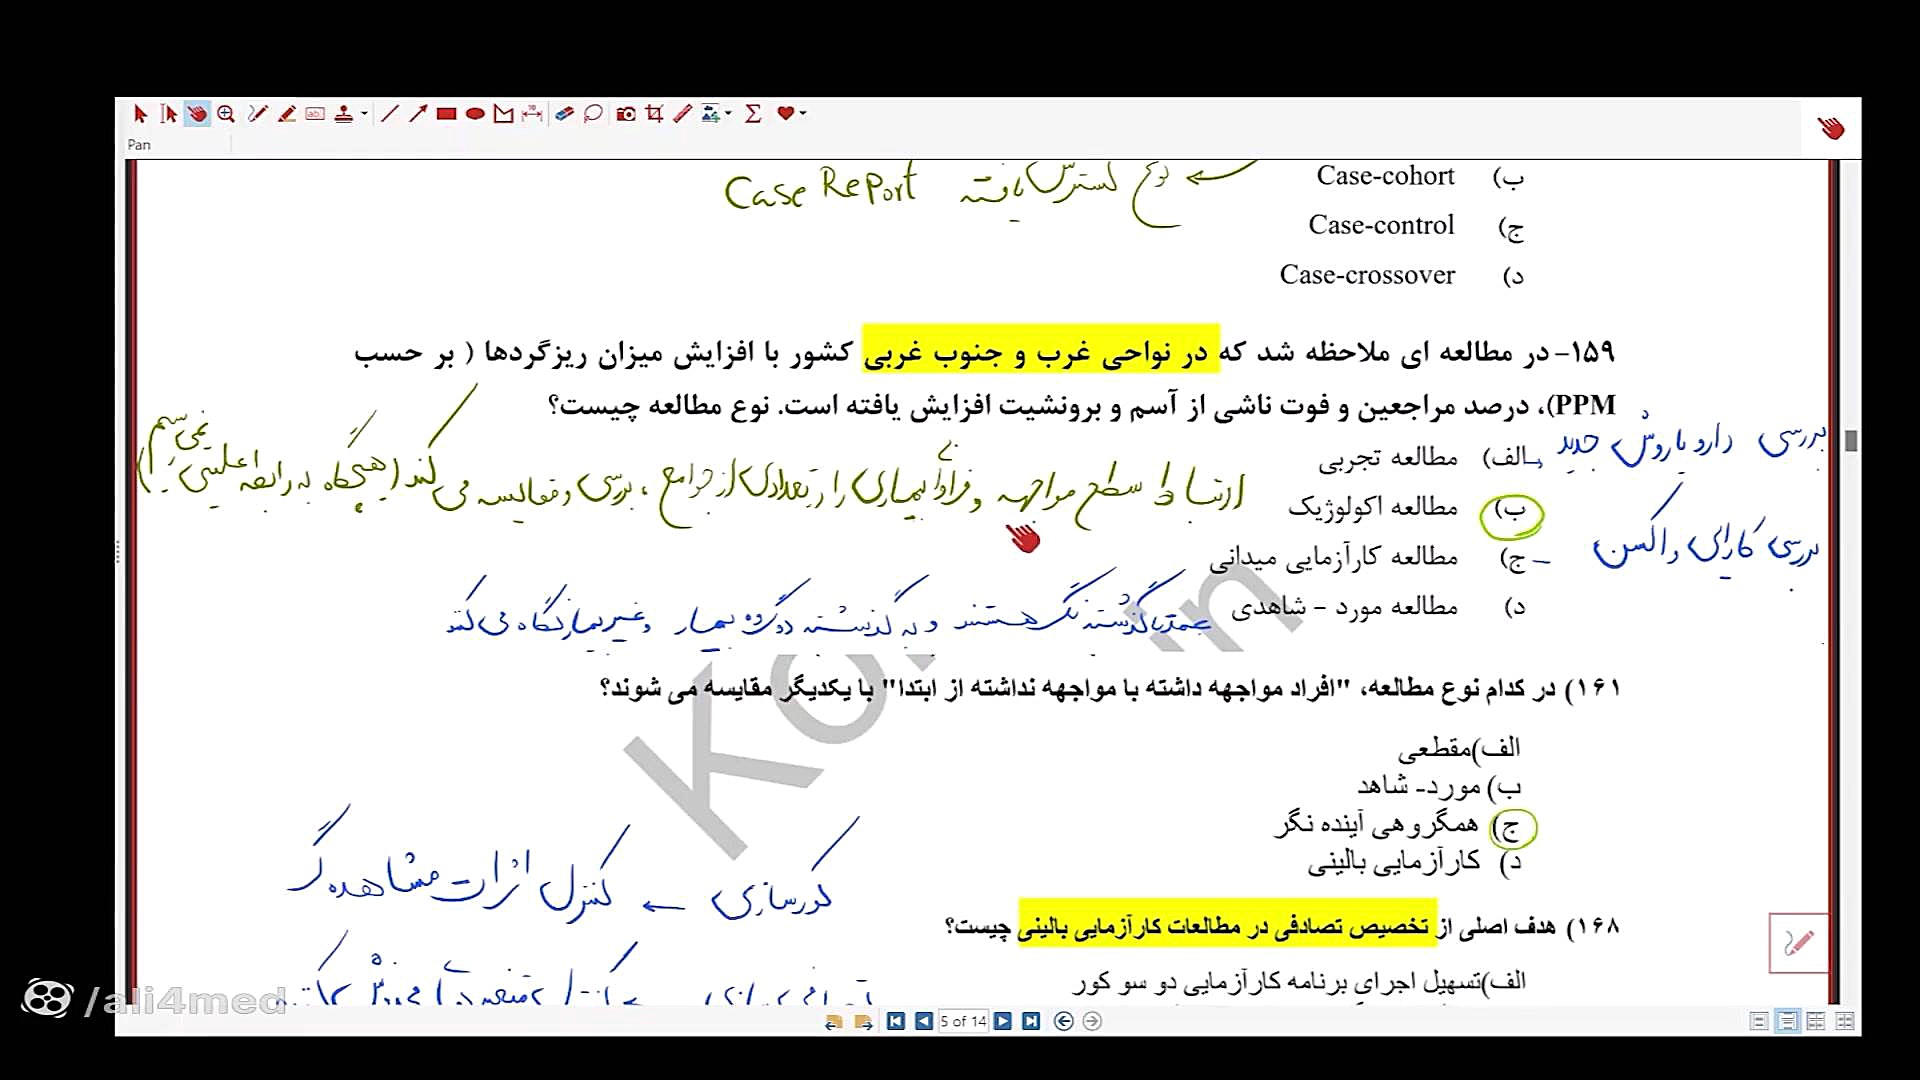 Pan
Case-cohort (ب
نوع گسترش یافته Case Report
Case-control (ج
Case-crossover (د
۱۵۹- در مطالعه ای ملاحظه شد که در نواحی غرب و جنوب غربی کشور با افزایش میزان ریزگردها ( بر حسب
PPM)، درصد مراجعین و فوت ناشی از آسم و برونشیت افزایش یافته است. نوع مطالعه چیست؟
الف) مطالعه تجربی
بررسی دارو یا روش جدید
ب) مطالعه اکولوژیک
ارتباط سطح مواجهه و فراوانی بیماری را در تعدادی از جوامع، بررسی و مقایسه می کند (هیچگاه به رابطه علیتی نمی رسیم)
ج) مطالعه کارآزمایی میدانی
بررسی کارایی واکسن
د) مطالعه مورد – شاهدی
عمدتا گذشته نگر هستند و به گذشته دو گروه بیمار و غیر بیمار نگاه می کند
Ko in
۱۶۱) در کدام نوع مطالعه، "افراد مواجهه داشته با مواجهه نداشته از ابتدا" با یکدیگر مقایسه می شوند؟
الف)مقطعی
ب) مورد- شاهد
ج) همگروهی آینده نگر
د) کارآزمایی بالینی
کورسازی ← کنترل اثرات مشاهده گر
۱۶۸) هدف اصلی از تخصیص تصادفی در مطالعات کارآزمایی بالینی چیست؟
الف)تسهیل اجرای برنامه کارآزمایی دو سو کور
/ali4med
5 of 14